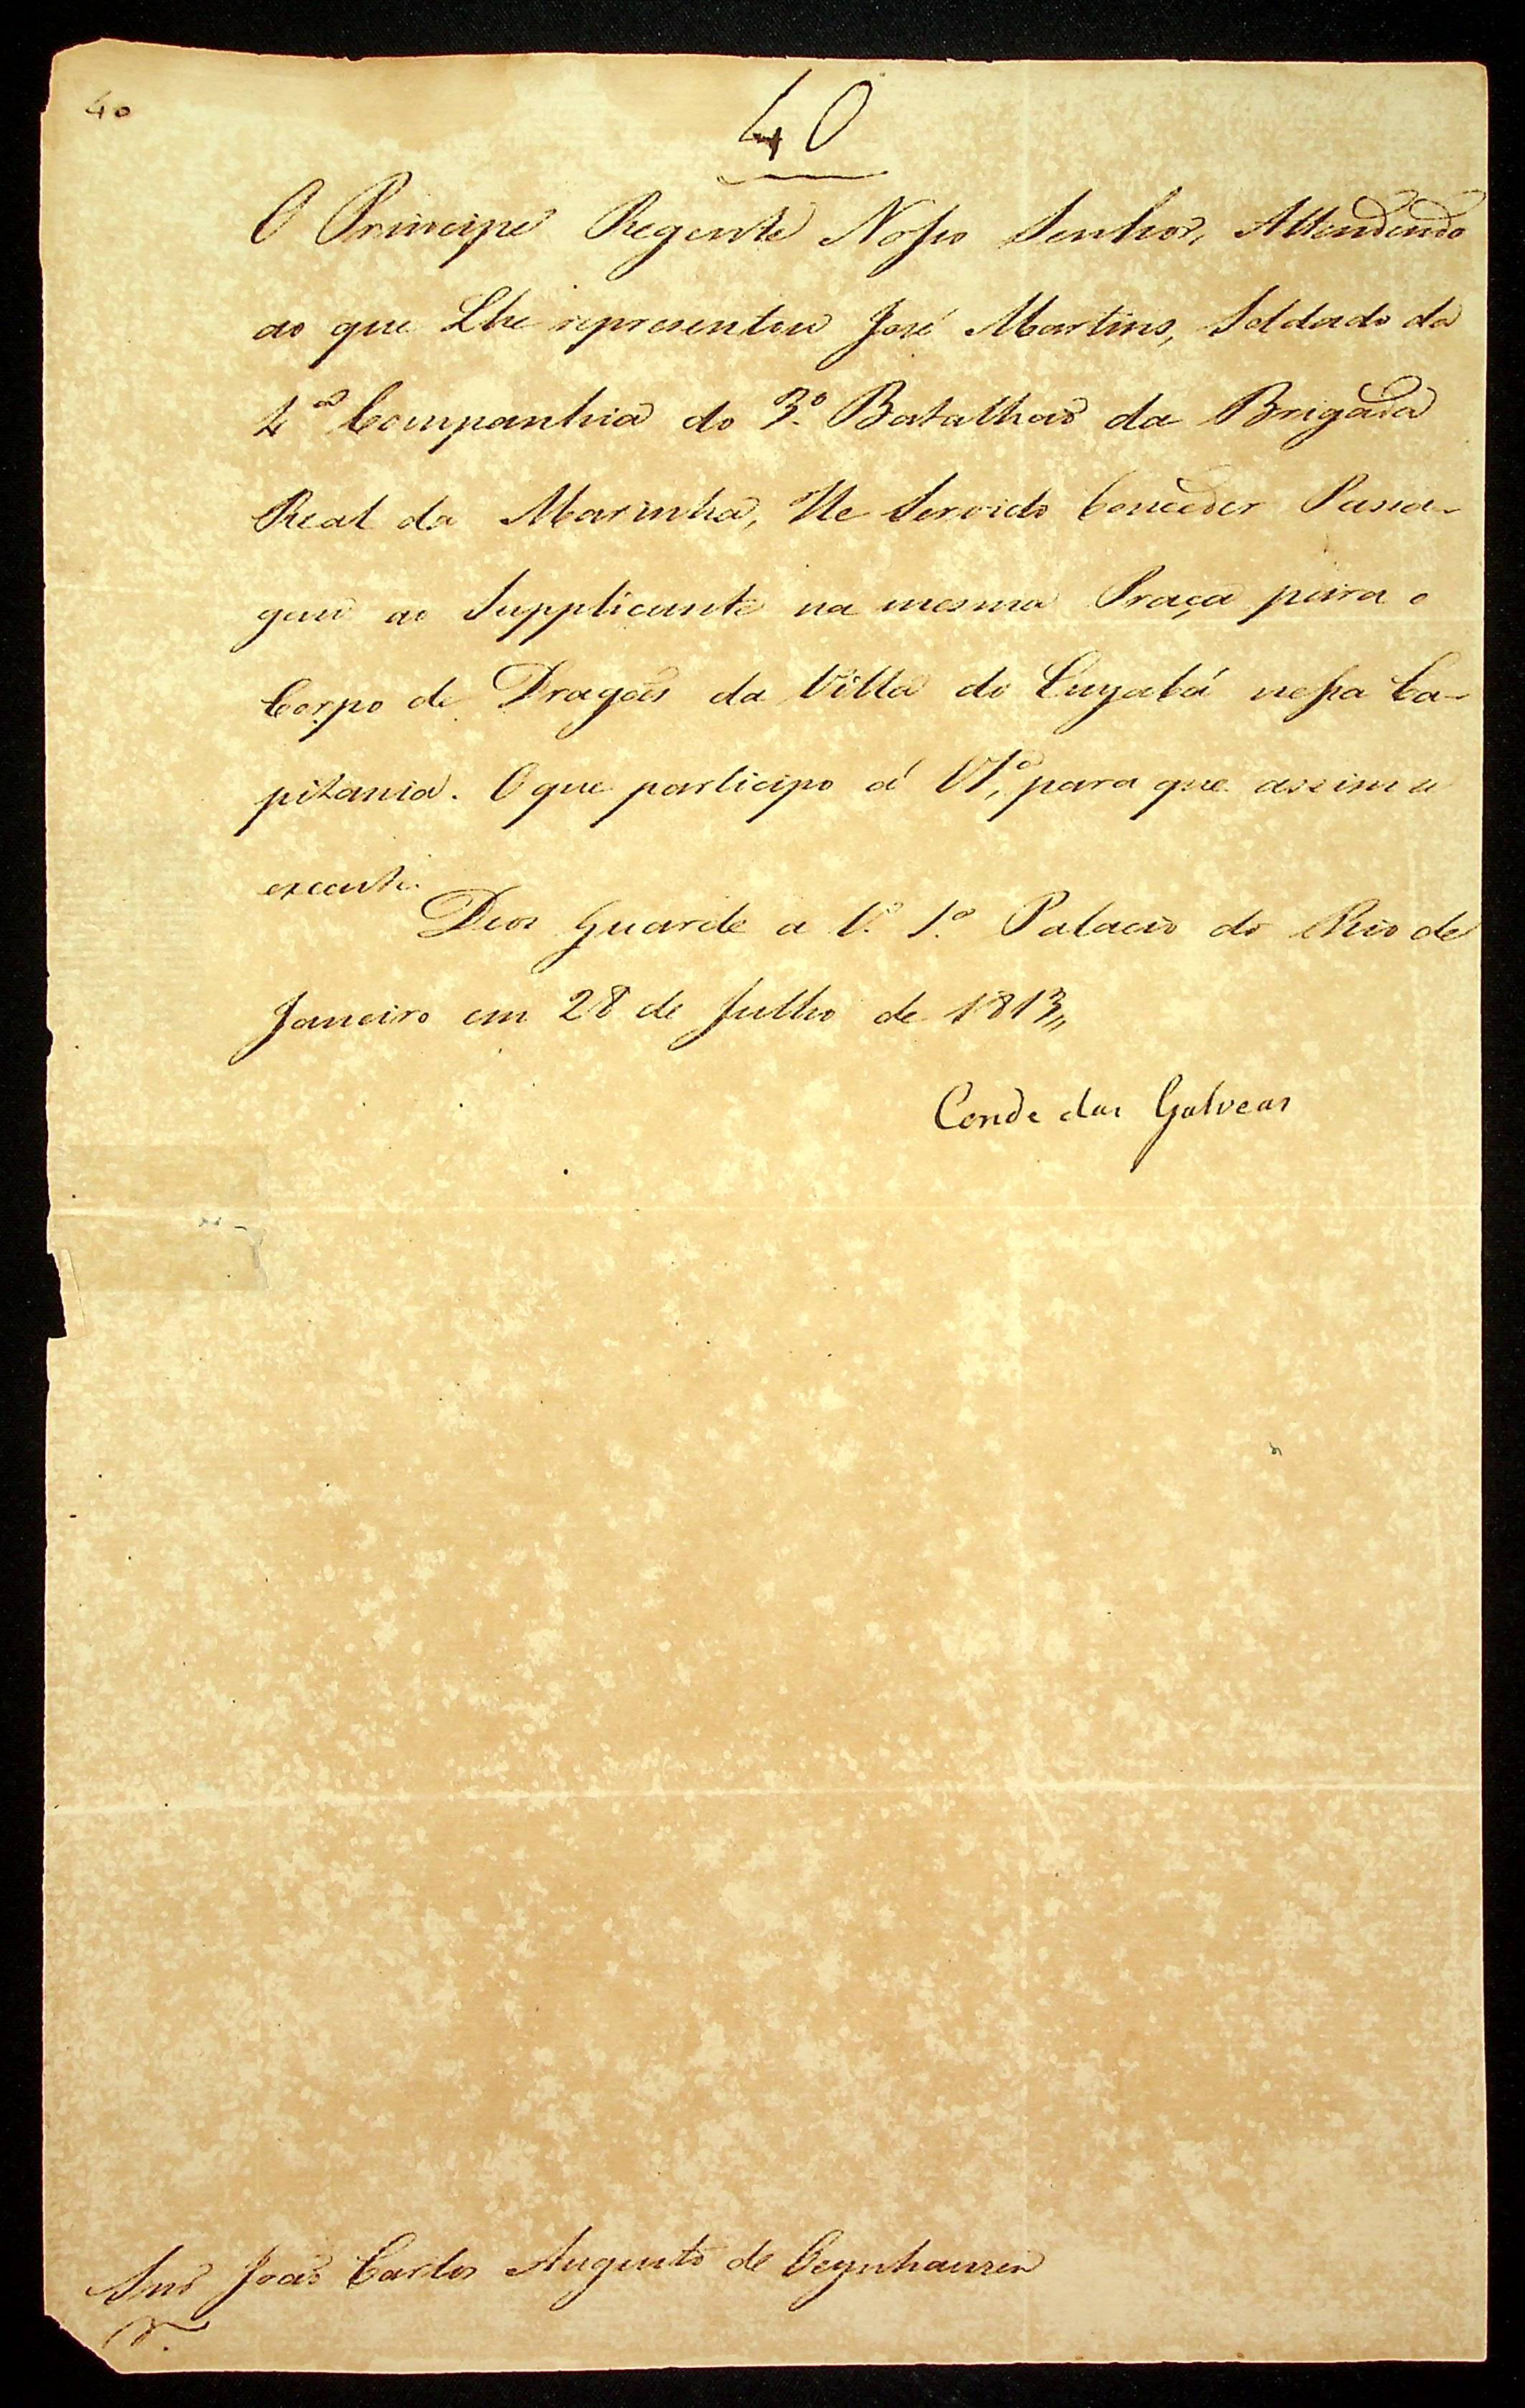 40
40
O Principe Regente Nosso Senhor, Attendendo
ao que Lhe representou José Martins, Soldado da
4ª Companhia do 3º Batalhaõ da Brigada
Real da Marinha, He Servido Conceder Passa-
gem ao Supplicante na mesma Praça para o
Corpo de Dragoẽs da Villa do Cuyabá nessa Ca-
pitania. O que participo á VSª, para que assim o
execute.
Deos Guarde a V. Sª. Palacio do Rio de
Janeiro em 28 de Julho de 1813,,
Conde das Galveas
Snr João Carlos Augusto de Oeynhausen